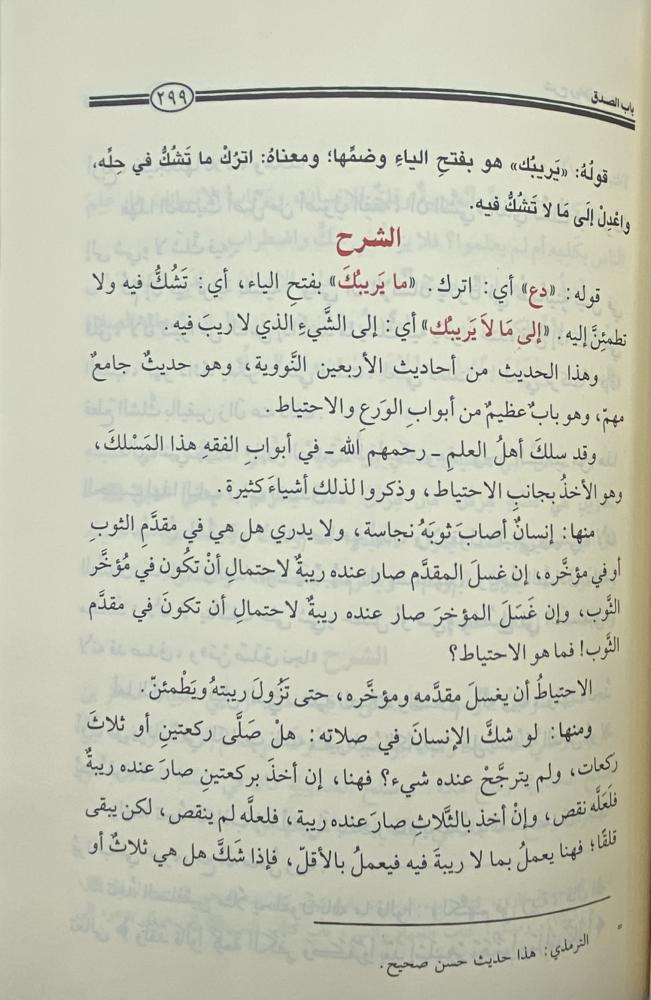 باب الصدق
٢٩٩
قولُهُ: «يَريبُك» هو بفتحِ الياءِ وضمِّها؛ ومعناهُ: اترُكْ ما تَشُكُّ في حِلِّه،
واعْدِلْ إلَى مَا لَا تَشُكُّ فيه.
الشرح
قوله: «دع» أي: اترك. «ما يَريبُكَ» بفتحِ الياء، أي: تَشُكُّ فيه ولا
تطمئِنَّ إليه. «إلى مَا لاَ يَريبُك» أي: إلى الشَّيءِ الذي لا ريبَ فيه.
وهذا الحديث من أحاديث الأربعين النَّووية، وهو حديثٌ جامعٌ
مهمّ، وهو بابٌ عظيمٌ من أبوابِ الورَعِ والاحتياط.
وقد سلكَ أهلُ العلمِ ـ رحمهم الله ـ في أبوابِ الفقهِ هذا المَسْلكَ،
وهو الأخذُ بجانبِ الاحتياط، وذكروا لذلك أشياءَ كثيرة.
منها: إنسانٌ أصابَ ثوبَهُ نجاسة، ولا يدري هل هي في مقدَّمِ الثوبِ
أو في مؤخَّره، إن غسلَ المقدَّم صار عنده ريبةٌ لاحتمالِ أنْ تكُون في مُؤخَّر
الثَّوب، وإن غَسَلَ المؤخرَ صار عنده ريبةٌ لاحتمالِ أن تكونَ في مقدَّم
الثَّوب! فما هو الاحتياط؟
الاحتياطُ أن يغسلَ مقدَّمه ومؤخَّره، حتى تَزُولَ ريبتهُ ويَطْمئنّ.
ومنها: لو شكَّ الإنسانَ في صلاته: هلْ صَلَّى ركعتينِ أو ثلاثَ
ركعات، ولم يترجَّحْ عنده شيء؟ فهنا، إن أخذَ بركعتينِ صارَ عنده ريبةٌ
فلَعَلَّه نقص، وإنْ أخذ بالثَّلاثِ صارَ عنده ريبة، فلعلَّه لم ينقص، لكن يبقى
قلقًا؛ فهنا يعملُ بما لا ريبةَ فيه فيعملُ بالأقلّ، فإذا شَكَّ هل هي ثلاثٌ أو
الترمذي: هذا حديث حسن صحيح.